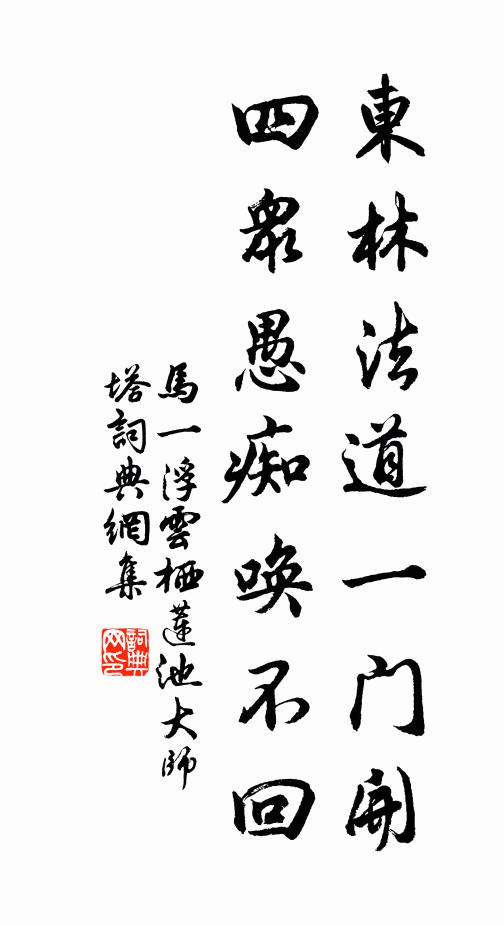 東林法道一门開
四衆愚痴唤不回
馬一浮雲栖蓮池大師
塔詞典網集
詞典网印